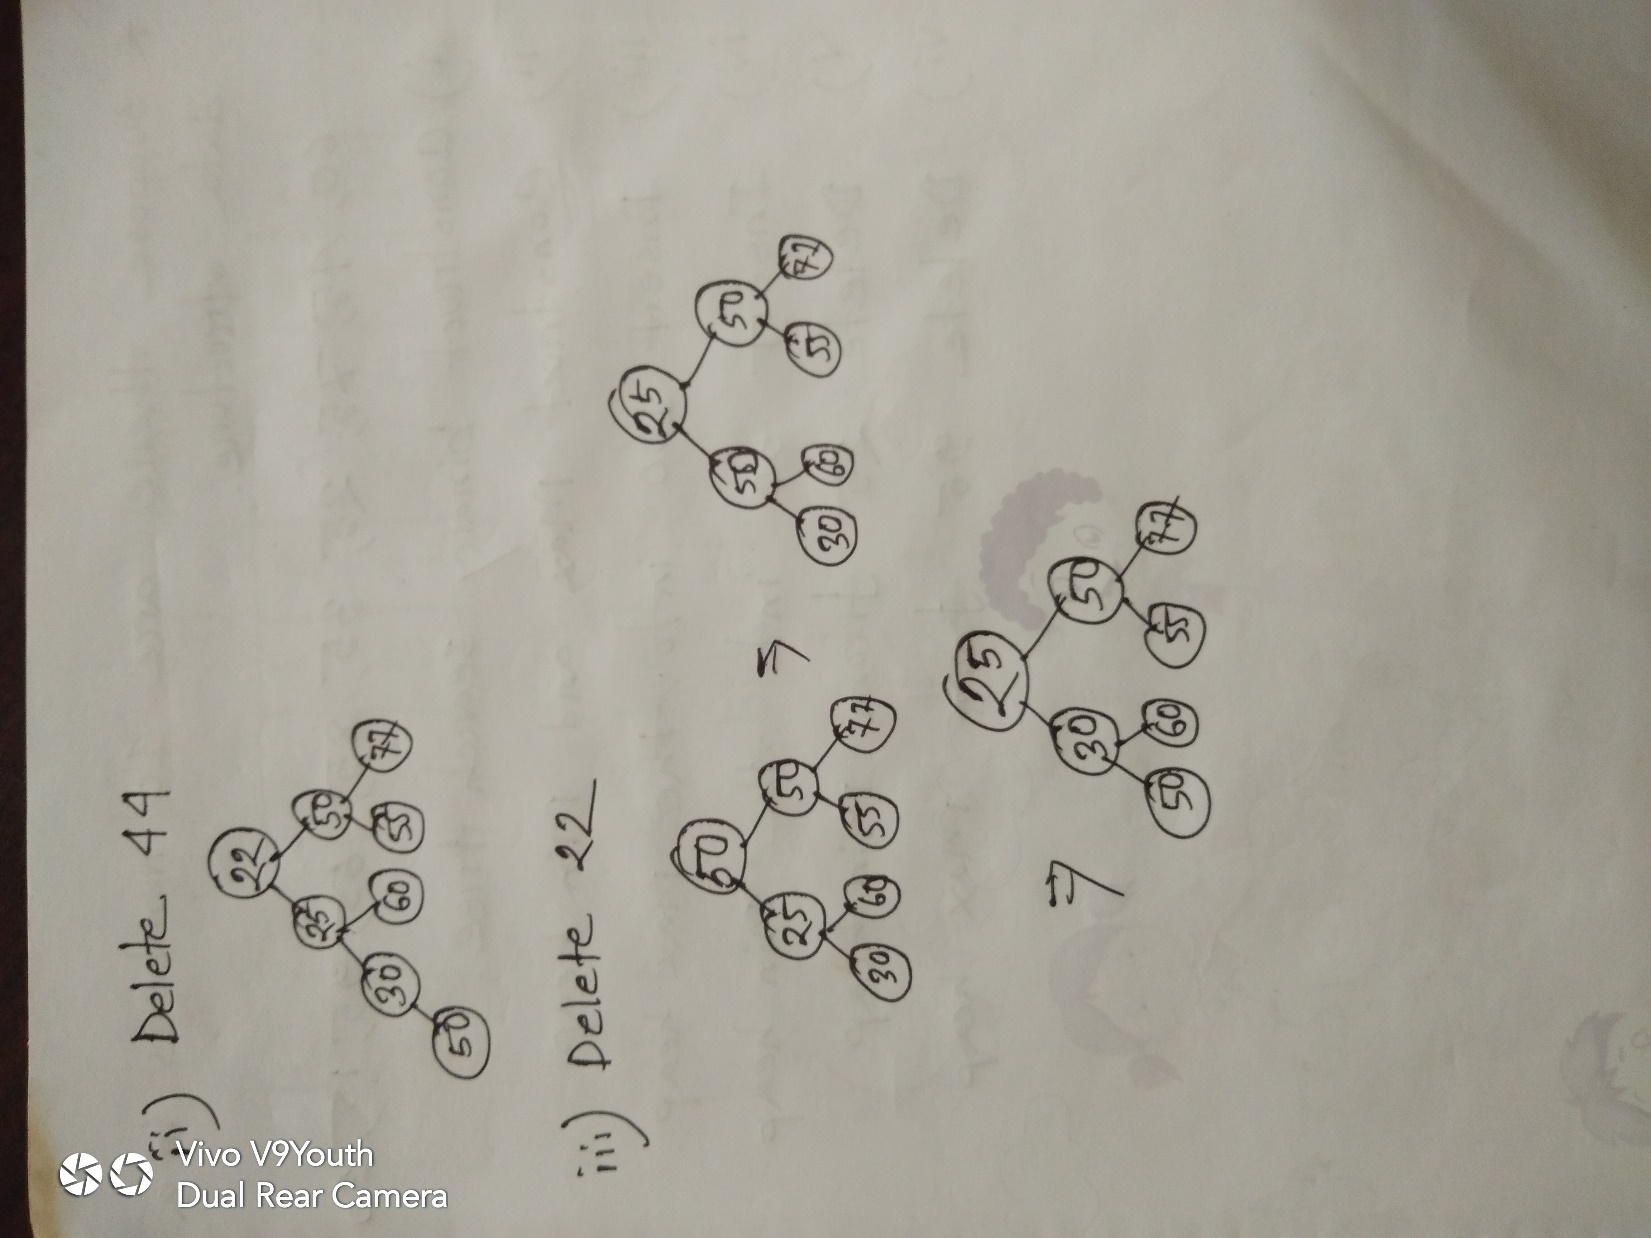 ii) Delete 44
22
25 50
30 60 55 77
50
iii) Delete 22
50
25 50
30 60 55 77
⇒
25
50 50
30 60 55 77
⇒
25
30 50
50 60 55 77
Vivo V9Youth
Dual Rear Camera